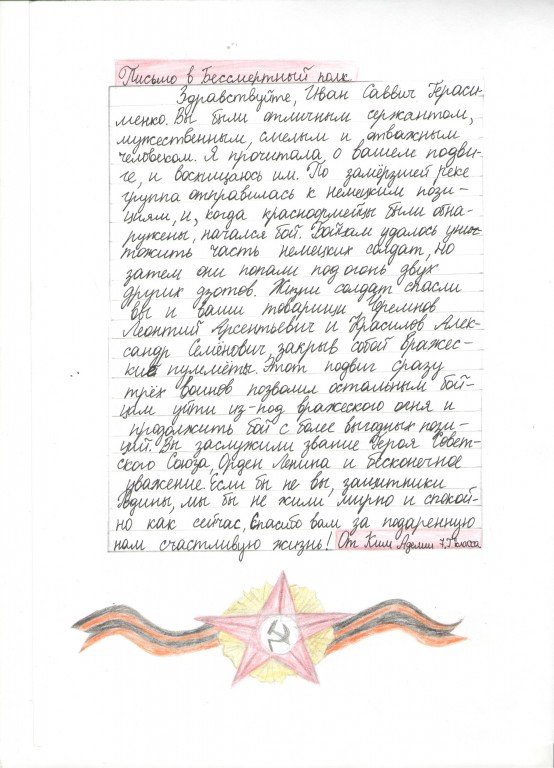 Письмо в Бессмертный полк.
Здравствуйте, Иван Саввич Гераси-
менко. Вы были отличным сержантом,
мужественным, смелым и отважным
человеком. Я прочитала о вашем подви-
ге, и восхищаюсь им. По замёрзшей реке
группа отправилась к немецким пози-
циям, и, когда красноармейцы были обна-
ружены, начался бой. Бойцам удалось унич-
тожить часть немецких солдат, но
затем они попали под огонь двух
других дзотов. Жизни солдат спасли
вы и ваши товарищи Черемнов
Леонтий Арсентьевич и Красилов Алек-
сандр Семёнович, закрыв собой вражес-
кие пулемёты. Этот подвиг сразу
трёх воинов позволил остальным бой-
цам уйти из-под вражеского огня и
продолжить бой с более выгодных пози-
ций. Вы заслужили звание Героя Совет-
ского Союза, Орден Ленина и бесконечное
уважение. Если бы не вы, защитники
Родины, мы бы не жили мирно и спокой-
но как сейчас. Спасибо вам за подаренную
нам счастливую жизнь! От Ким Аделии 7"Г" класса.